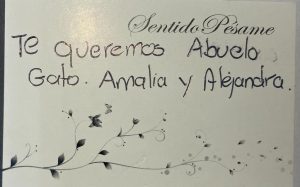 Sentido Pésame
Te queremos Abuelo
Gato. Amalia y Alejandra.